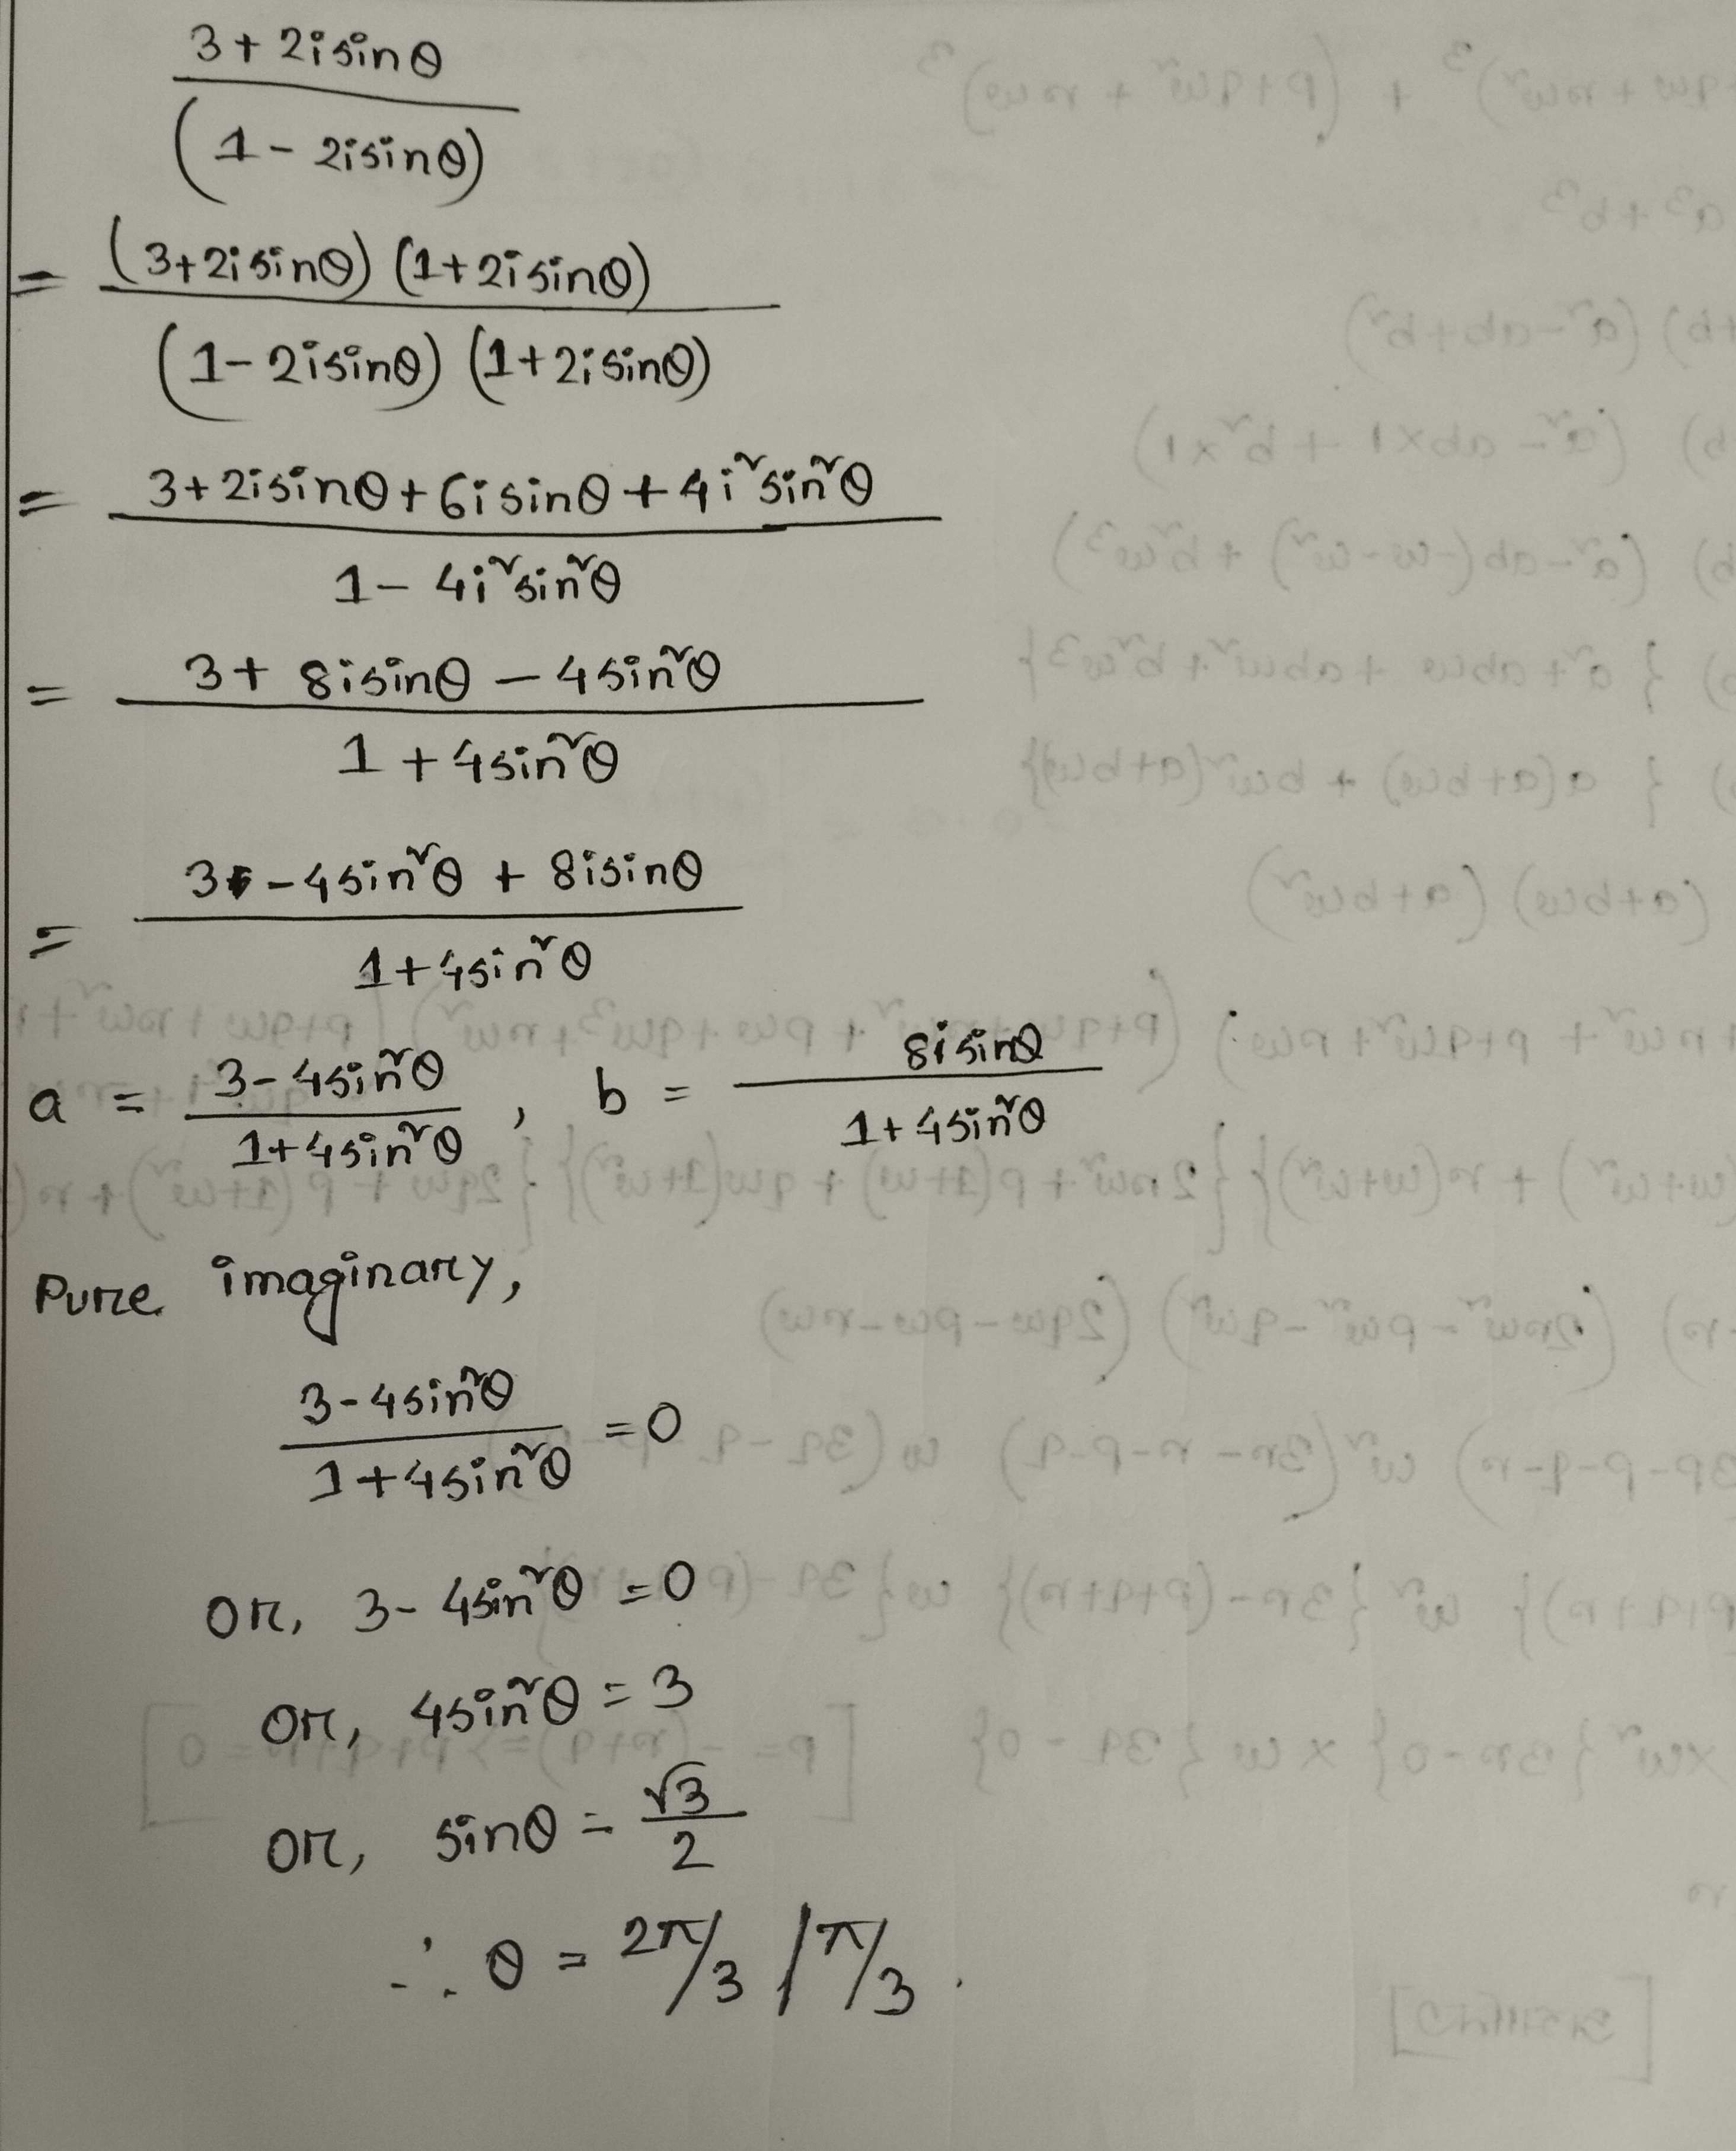 3 + 2i sinθ
(1 - 2i sinθ)
= (3+2i sinθ) (1+2i sinθ)
(1-2i sinθ) (1+2i sinθ)
= 3+2i sinθ+6i sinθ+4i² sin²θ
1- 4i² sin²θ
= 3+ 8i sinθ - 4sin²θ
1 + 4sin²θ
= 3 - 4sin²θ + 8i sinθ
1+4sin²θ
a = 3-4sin²θ / 1+4sin²θ , b = 8i sinθ / 1+4sin²θ
Pure imaginary,
3-4sin²θ / 1+4sin²θ = 0
or, 3- 4sin²θ = 0
or, 4sin²θ = 3
or, sinθ = √3/2
∴ θ = 2π/3 / π/3 .